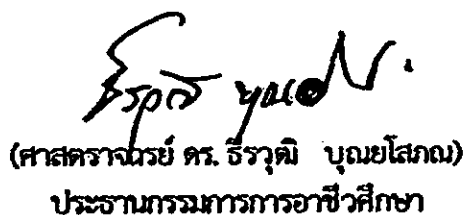 ธีรวุฒิ บุณยโสภณ
(ศาสตราจารย์ ดร. ธีรวุฒิ บุณยโสภณ)
ประธานกรรมการการอาชีวศึกษา